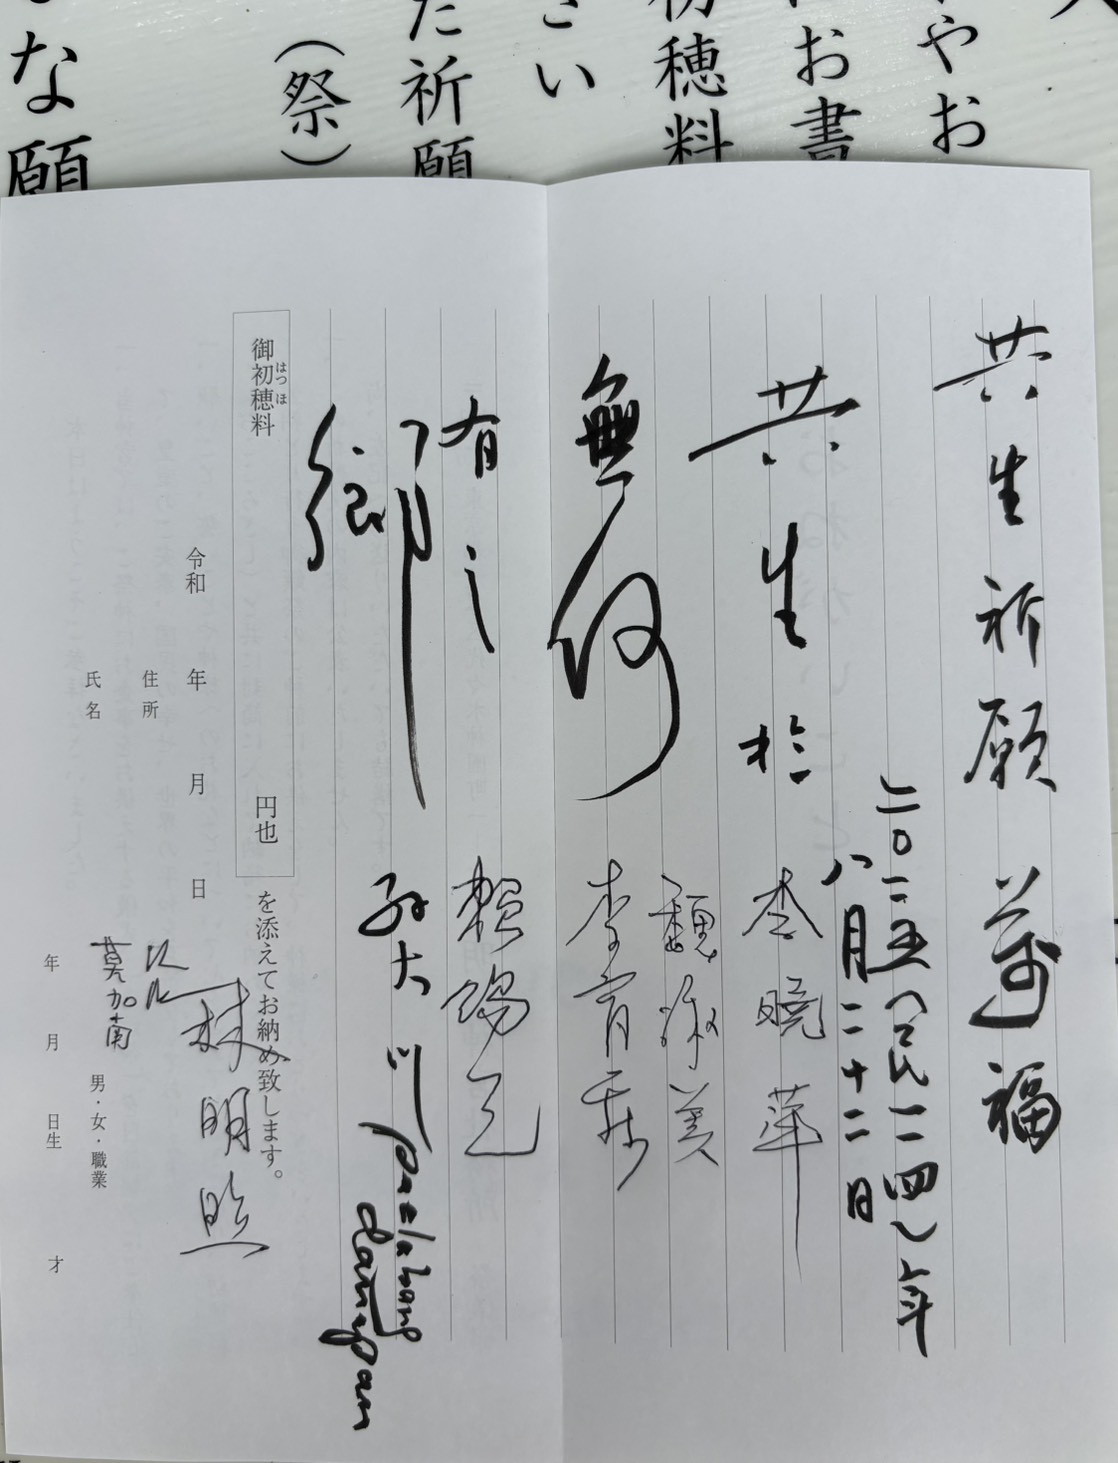 やお
お書
初穂料
さい
た祈願
（祭）
な願
共生祈願萬福
二〇二五（民一一四）年
八月二十二日
共生於
李曉華
魏淑美
無何
李育霖
有之
賴鴻
鄉
孫大川
paelabang
danapan
御初穂料
はつほ
円也
を添えてお納め致します。
林明
令和 年 月 日
住所
氏名
莫加南
男・女・職業
年 月 日生 才